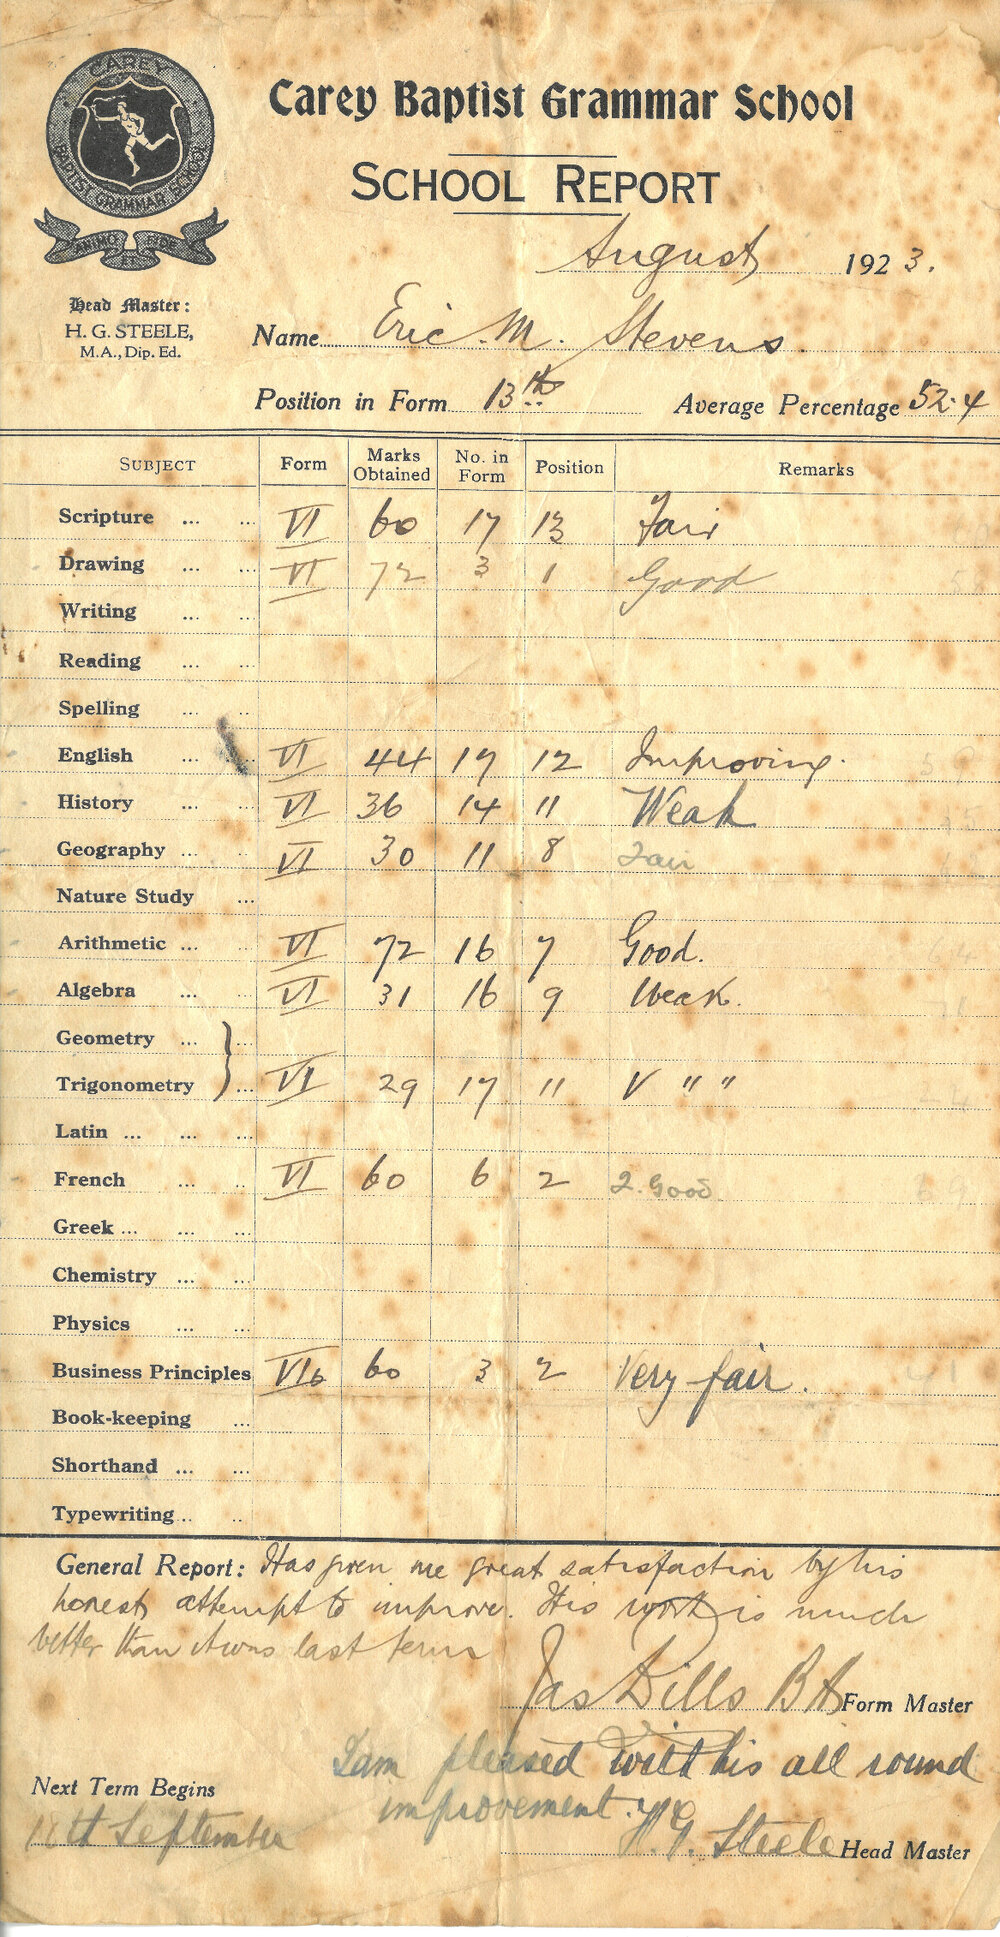 CAREY
BAPTIST GRAMMAR SCHOOL
ANIMO ET FIDE
Carey Baptist Grammar School
SCHOOL REPORT
August 1923.
Head Master:
H. G. STEELE,
M.A., Dip. Ed.
Name Eric. M. Stevens.
Position in Form 13th Average Percentage 52.4
SUBJECT Form Marks Obtained No. in Form Position Remarks
Scripture ... ... VI 60 17 13 Fair
Drawing ... ... VI 72 3 1 Good
Writing ... ...
Reading ... ...
Spelling ... ...
English ... ... VI 44 17 12 Improving.
History ... ... VI 36 14 11 Weak
Geography ... ... VI 30 11 8 Fair
Nature Study ...
Arithmetic ... ... VI 72 16 7 Good.
Algebra ... ... VI 31 16 9 Weak.
Geometry ... ...
Trigonometry } ... VI 29 17 11 V " "
Latin ... ... ...
French ... ... VI 60 6 2 2. Good.
Greek ... ... ...
Chemistry ... ...
Physics ... ...
Business Principles VIb 60 3 2 Very fair.
Book-keeping ...
Shorthand ... ...
Typewriting .. ..
General Report: Has given me great satisfaction by his
honest attempt to improve. His work is much
better than it was last term
Jas Dills B A Form Master
I am pleased with his all round
Next Term Begins
improvement.
September
H. G. Steele Head Master